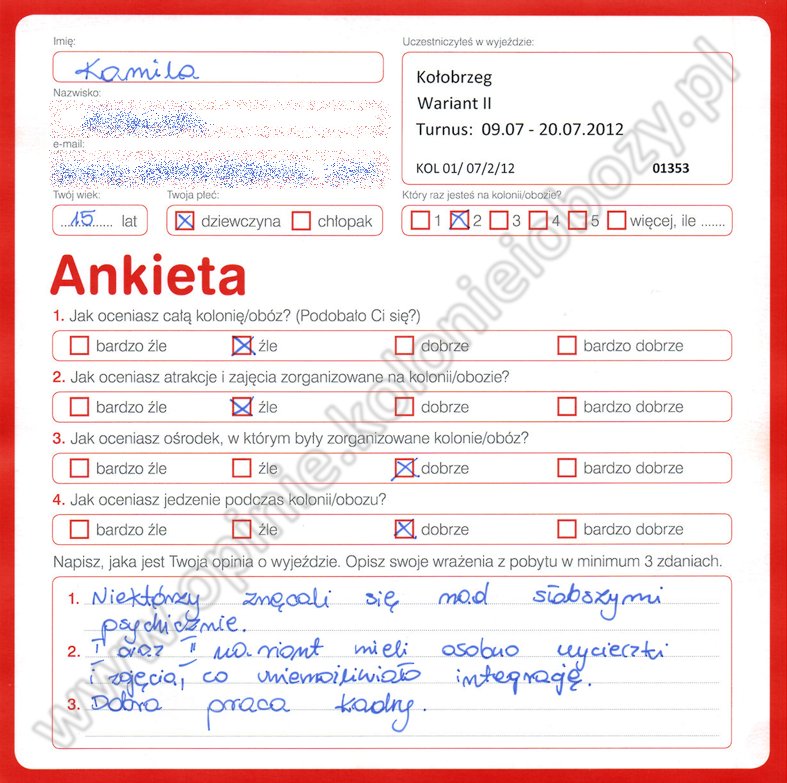 Imię:
Kamila
Uczestniczyłeś w wyjeździe:
Kołobrzeg
Wariant II
Turnus: 09.07 - 20.07.2012
KOL 01/ 07/2/12 01353
Nazwisko:
e-mail:
Twój wiek:
15 lat
Twoja płeć:
dziewczyna chłopak
Który raz jesteś na kolonii/obozie?
1 2 3 4 5 więcej, ile .......
Ankieta
1. Jak oceniasz całą kolonię/obóz? (Podobało Ci się?)
bardzo źle źle dobrze bardzo dobrze
2. Jak oceniasz atrakcje i zajęcia zorganizowane na kolonii/obozie?
bardzo źle źle dobrze bardzo dobrze
3. Jak oceniasz ośrodek, w którym były zorganizowane kolonie/obóz?
bardzo źle źle dobrze bardzo dobrze
4. Jak oceniasz jedzenie podczas kolonii/obozu?
bardzo źle źle dobrze bardzo dobrze
Napisz, jaka jest Twoja opinia o wyjeździe. Opisz swoje wrażenia z pobytu w minimum 3 zdaniach.
1. Niektórzy znęcali się nad słabszymi
psychicznie.
2. I oraz II wariant mieli osobno wycieczki
i zajęcia, co uniemożliwiało integrację.
3. Dobra praca kadry.
www.opinie.kolonieiobozy.pl